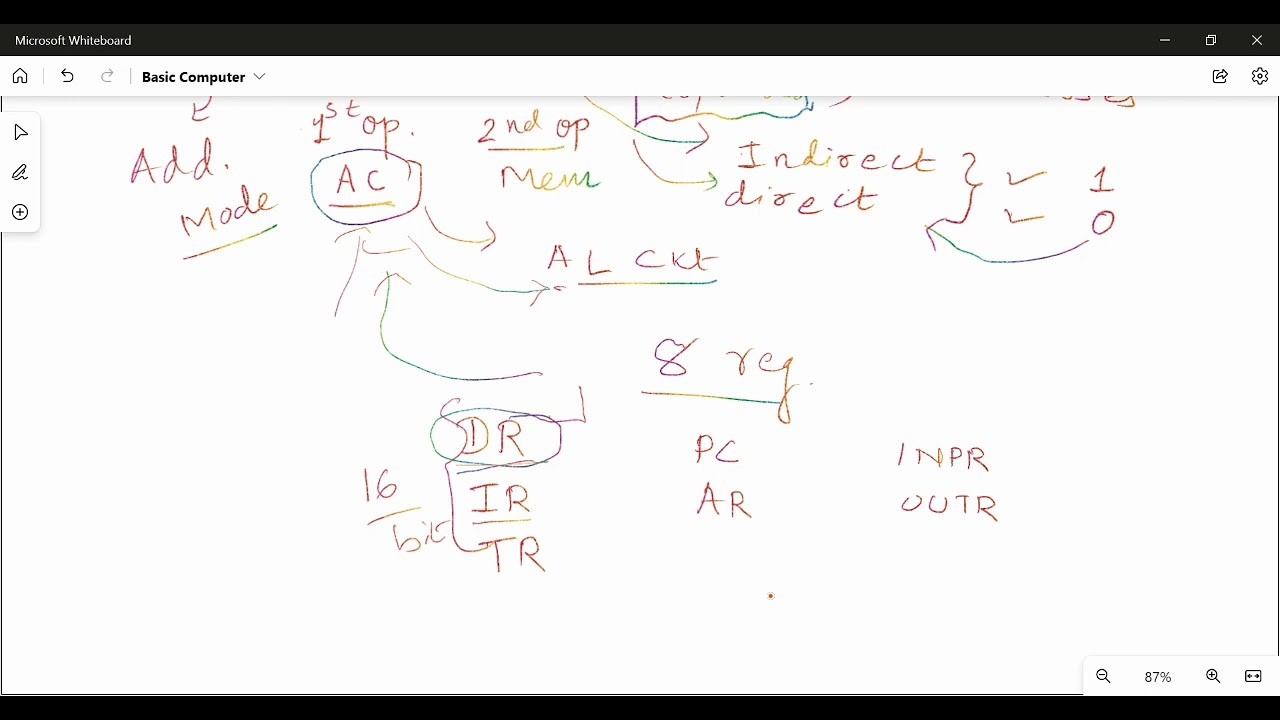 Microsoft Whiteboard
Basic Computer
1st op.
2nd op
Add.
Mode
AC
Mem
Indirect
direct
1
0
AL Ckt
8 reg.
DR
PC
INPR
16
bit
IR
AR
OUTR
TR
87%